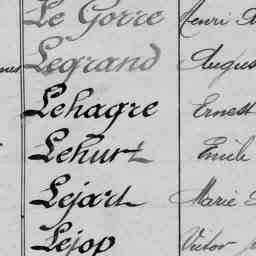 Le Gorre Henri
Legrand
Lehagre Ernest
Lehurt Emile
Lejart Marie
Lejop Victor